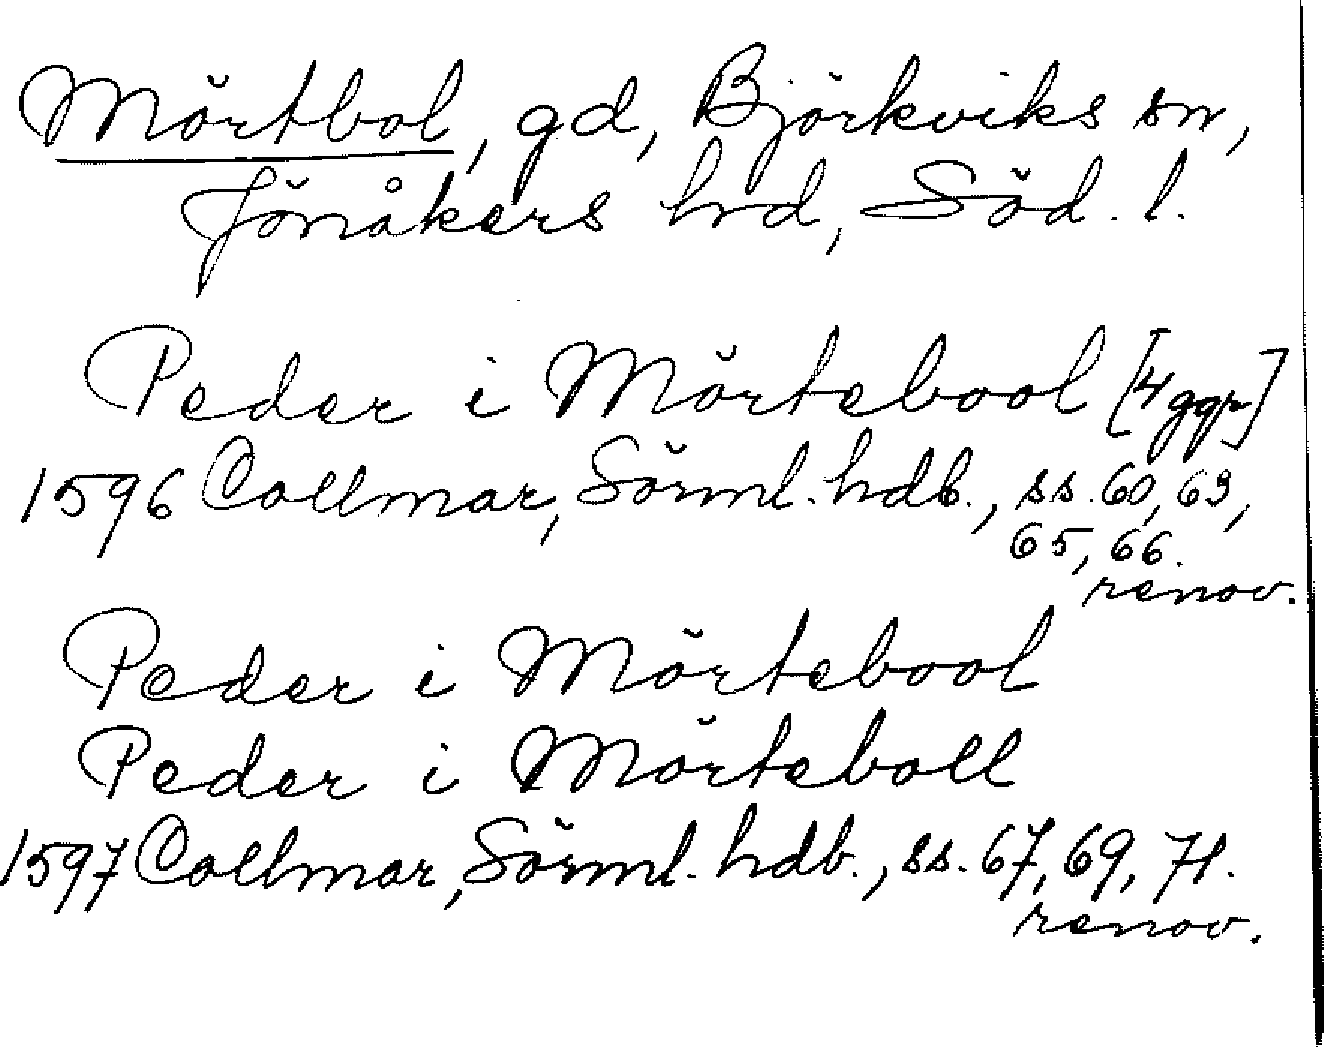 Mörtbol, gd, Björkviks sn,
Jönåkers hrd, Söd. l.
Peder i Mörtebool [4 ggr]
1596 Collmar, Sörml. hdb., ss. 60, 63,
65, 66.
renov.
Peder i Mörtebool
Peder i Mörteboll
1597 Collmar, Sörml. hdb., ss. 67, 69, 71.
renov.